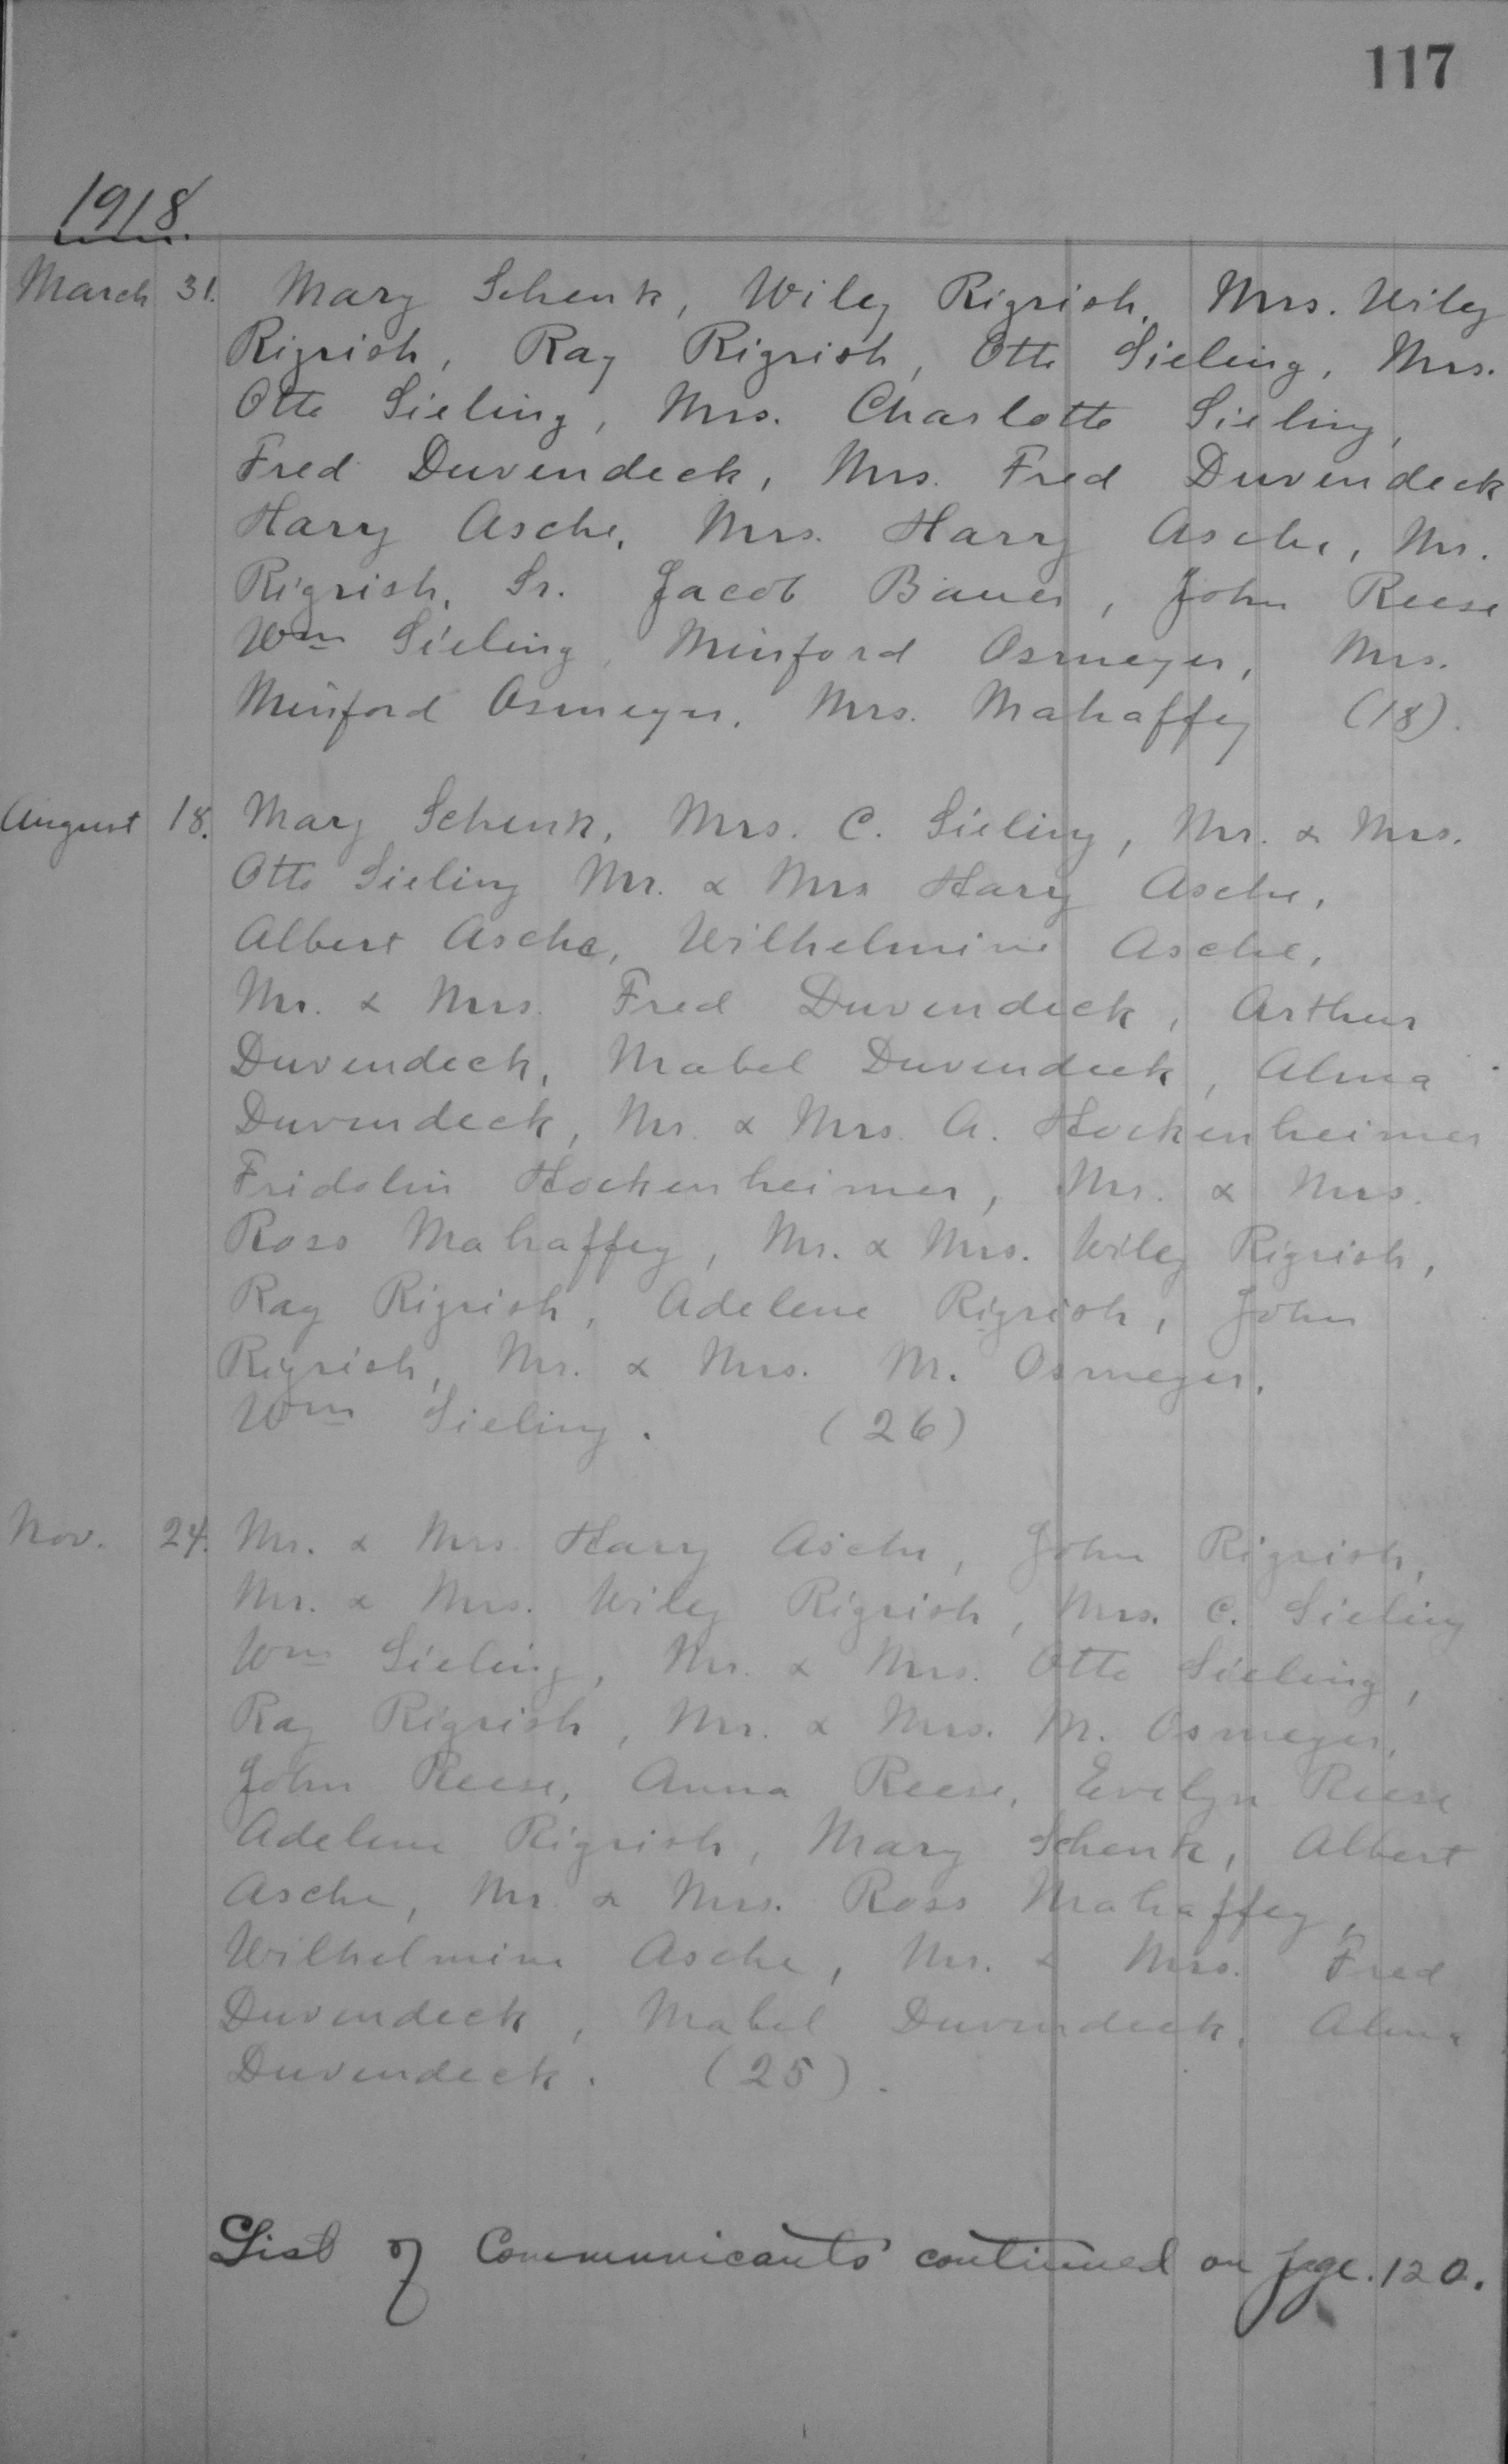 117
1918.
March 31. Mary Schenk, Wiley Rigrish, Mrs. Wiley
Rigrish, Ray Rigrish, Otto Sieling, Mrs.
Otto Sieling, Mrs. Charlotte Sieling,
Fred Duvendeck, Mrs. Fred Duvendeck
Harry Asche, Mrs. Harry Asche, Mr.
Rigrish, Sr. Jacob Bauer, John Reese
Wm Sieling, Minford Osmeyer, Mrs.
Minford Osmeyer, Mrs. Mahaffey (18).
August 18. Mary Schenk, Mrs. C. Sieling, Mr. & Mrs.
Otto Sieling Mr. & Mrs Harry Asche,
Albert Asche, Wilhelmine Asche,
Mr. & Mrs. Fred Duvendeck, Arthur
Duvendeck, Mabel Duvendeck, Alma
Duvendeck, Mr. & Mrs. A. Hockenheimer
Fridolin Hockenheimer, Mr. & Mrs.
Ross Mahaffey, Mr. & Mrs. Wiley Rigrish,
Ray Rigrish, Adelene Rigrish, John
Rigrish, Mr. & Mrs. M. Osmeyer,
Wm Sieling. (26)
Nov. 24. Mr. & Mrs Harry Asche, John Rigrish,
Mr. & Mrs. Wiley Rigrish, Mrs. C. Sieling
Wm Sieling, Mr. & Mrs. Otto Sieling,
Ray Rigrish, Mr. & Mrs. M. Osmeyer,
John Reese, Anna Reese, Evelyn Reese
Adelene Rigrish, Mary Schenk, Albert
Asche, Mr. & Mrs. Ross Mahaffey,
Wilhelmine Asche, Mr. & Mrs. Fred
Duvendeck, Mabel Duvendeck, Alma
Duvendeck. (25).
List of Communicants continued on page. 120.